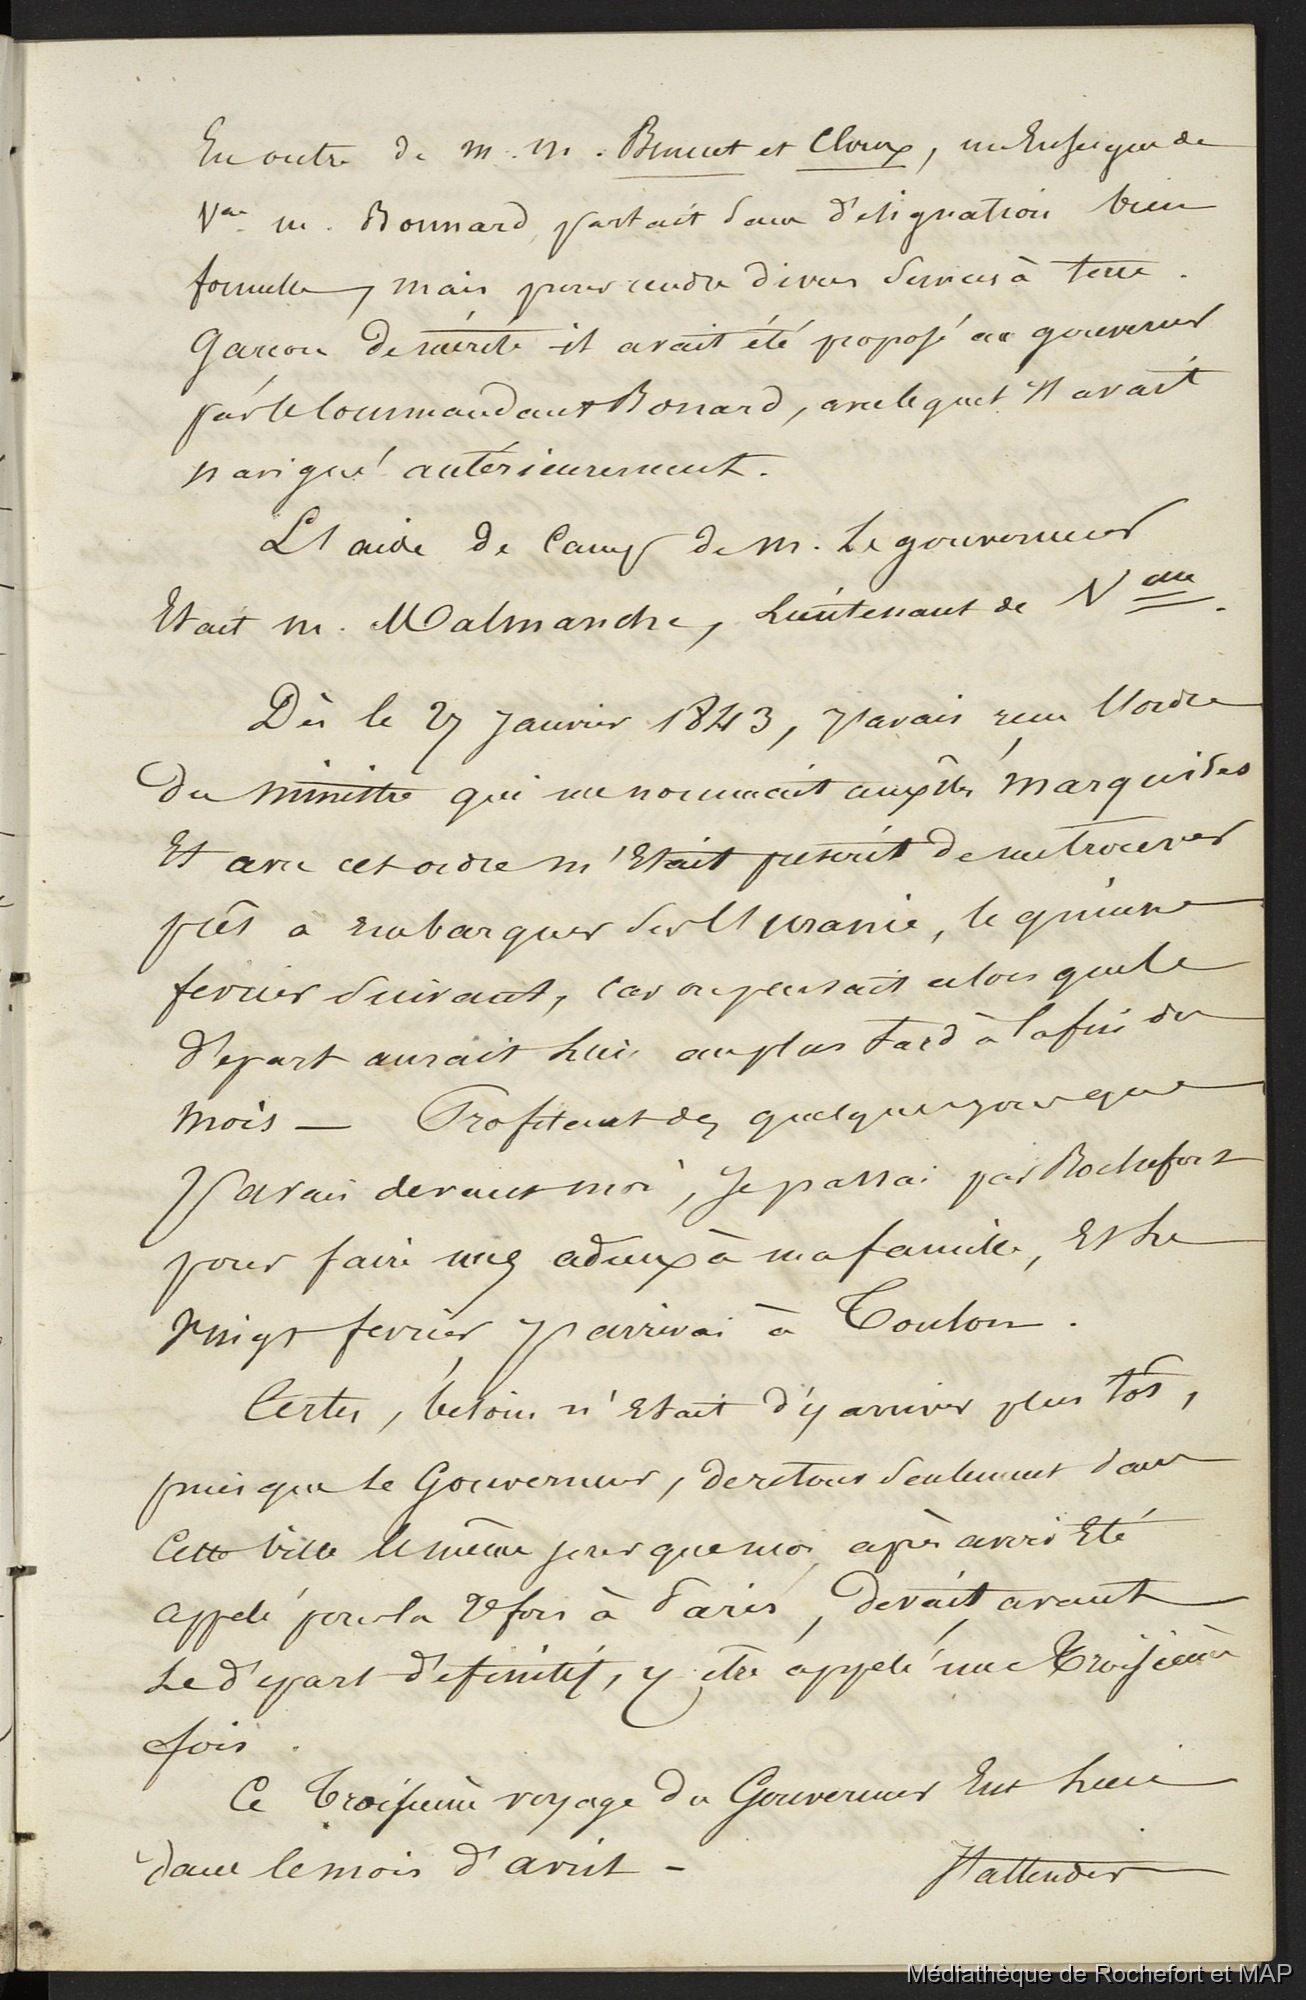 En outre de M. M. Brunet et Cloux, un Enseigne de
Vau M. Bonnard, partait sans désignation bien
formelle, mais pour rendre divers services à terre.
Garcon de mérite il avait été proposé au gouverneur
par le Commandant Bonard, avec lequel il avait
navigué antérieurement.
L'aide de Camp de M. Le gouverneur
Etait M. Malmanche, Lieutenant de Vau.
Dès le 27 Janvier 1843, j'avais reçu l'ordre
du ministre qui me nommait aux îles Marquises
Et avec cet ordre m'Etait prescrit de me trouver
prêt à Embarquer sur l'Uranie, le quinze
fevrier suivant, Car on pensait alors que le
départ aurait Lieu au plus tard à la fin du
mois — Profitant des quelques jours que
j'avais devant moi, Je passai par Rochefort
pour faire mes adieux à ma famille, Et Le
Vingt fevrier j'arrivai à Toulon.
Certes, besoin n'Etait d'y arriver plus tôt,
puisque Le Gouverneur, de retour seulement dans
Cette Ville le même jour que moi, après avoir Eté
appelé pour la 2e fois à Paris, devait, avant
Le départ définitif, y être appelé une troisième
fois.
Ce troisième voyage du Gouverneur Eut Lieu
dans le mois d'avril -
J'attendis
Médiathèque de Rochefort et MAP